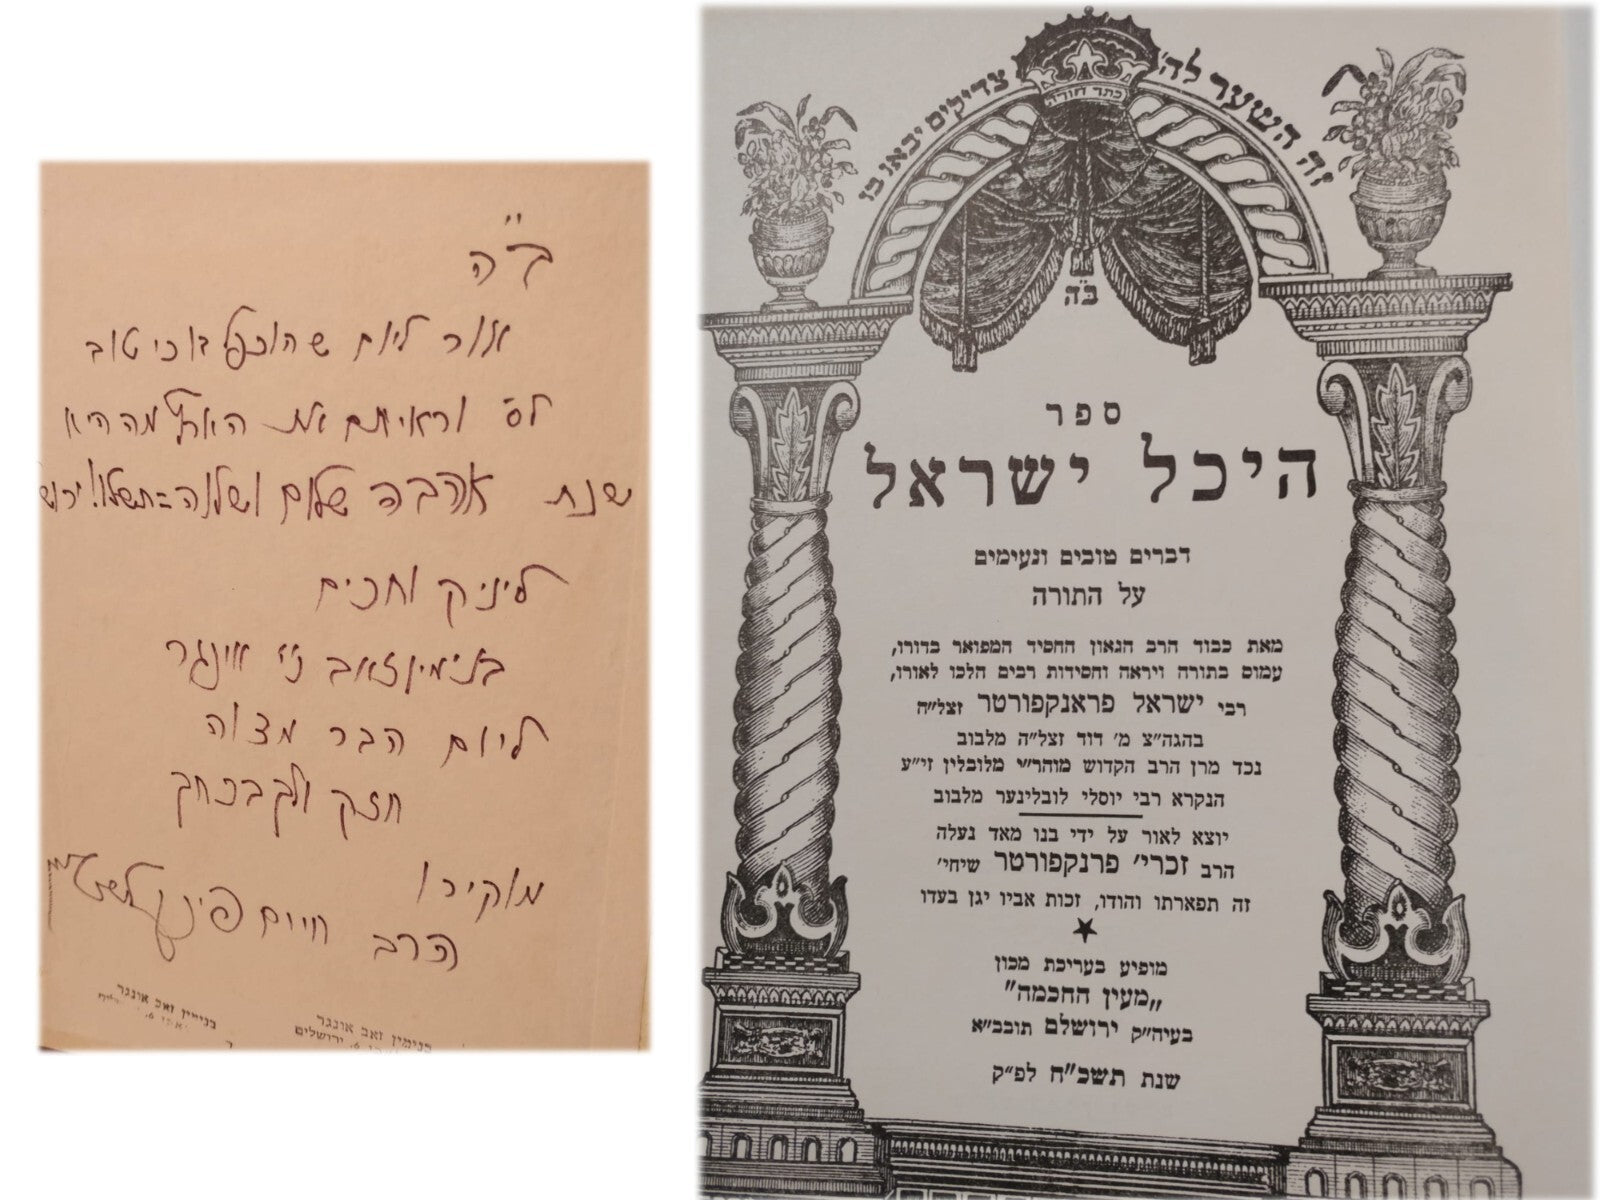 ב"ה
אור ליום שהוכפל בו כי טוב
לס' וראיתם את הארץ מה היא
שנת אהבה שלום ושלוה=תשלו! ירוש
ליניק וחכים
בנימין זאב ני' אונגר
ליום הבר מצוה
חזק
מוקירו
הרב חיים
בנימין זאב אונגר
בנימין זאב אונגר
6, ירושלים
זה השער לה' צדיקים יבאו בו
כתר תורה
ב"ה
ספר
היכל ישראל
דברים טובים ונעימים
על התורה
מאת כבוד הרב הגאון החסיד המפואר בדורו,
עמוס בתורה ויראה וחסידות רבים הלכו לאורו,
רבי ישראל פראנקפורטר זצל"ה
בהגה"צ מ' דוד זצל"ה מלבוב
נכד מרן הרב הקדוש מוהר"י מלובלין זי"ע
הנקרא רבי יוסלי לובלינער מלבוב
יוצא לאור על ידי בנו מאד נעלה
הרב זכרי' פרנקפורטר שיחי'
זה תפארתו והודו, זכות אביו יגן בעדו
מופיע בעריכת מכון
„מעין החכמה"
בעיה"ק ירושלם תובב"א
שנת תשכ"ח לפ"ק